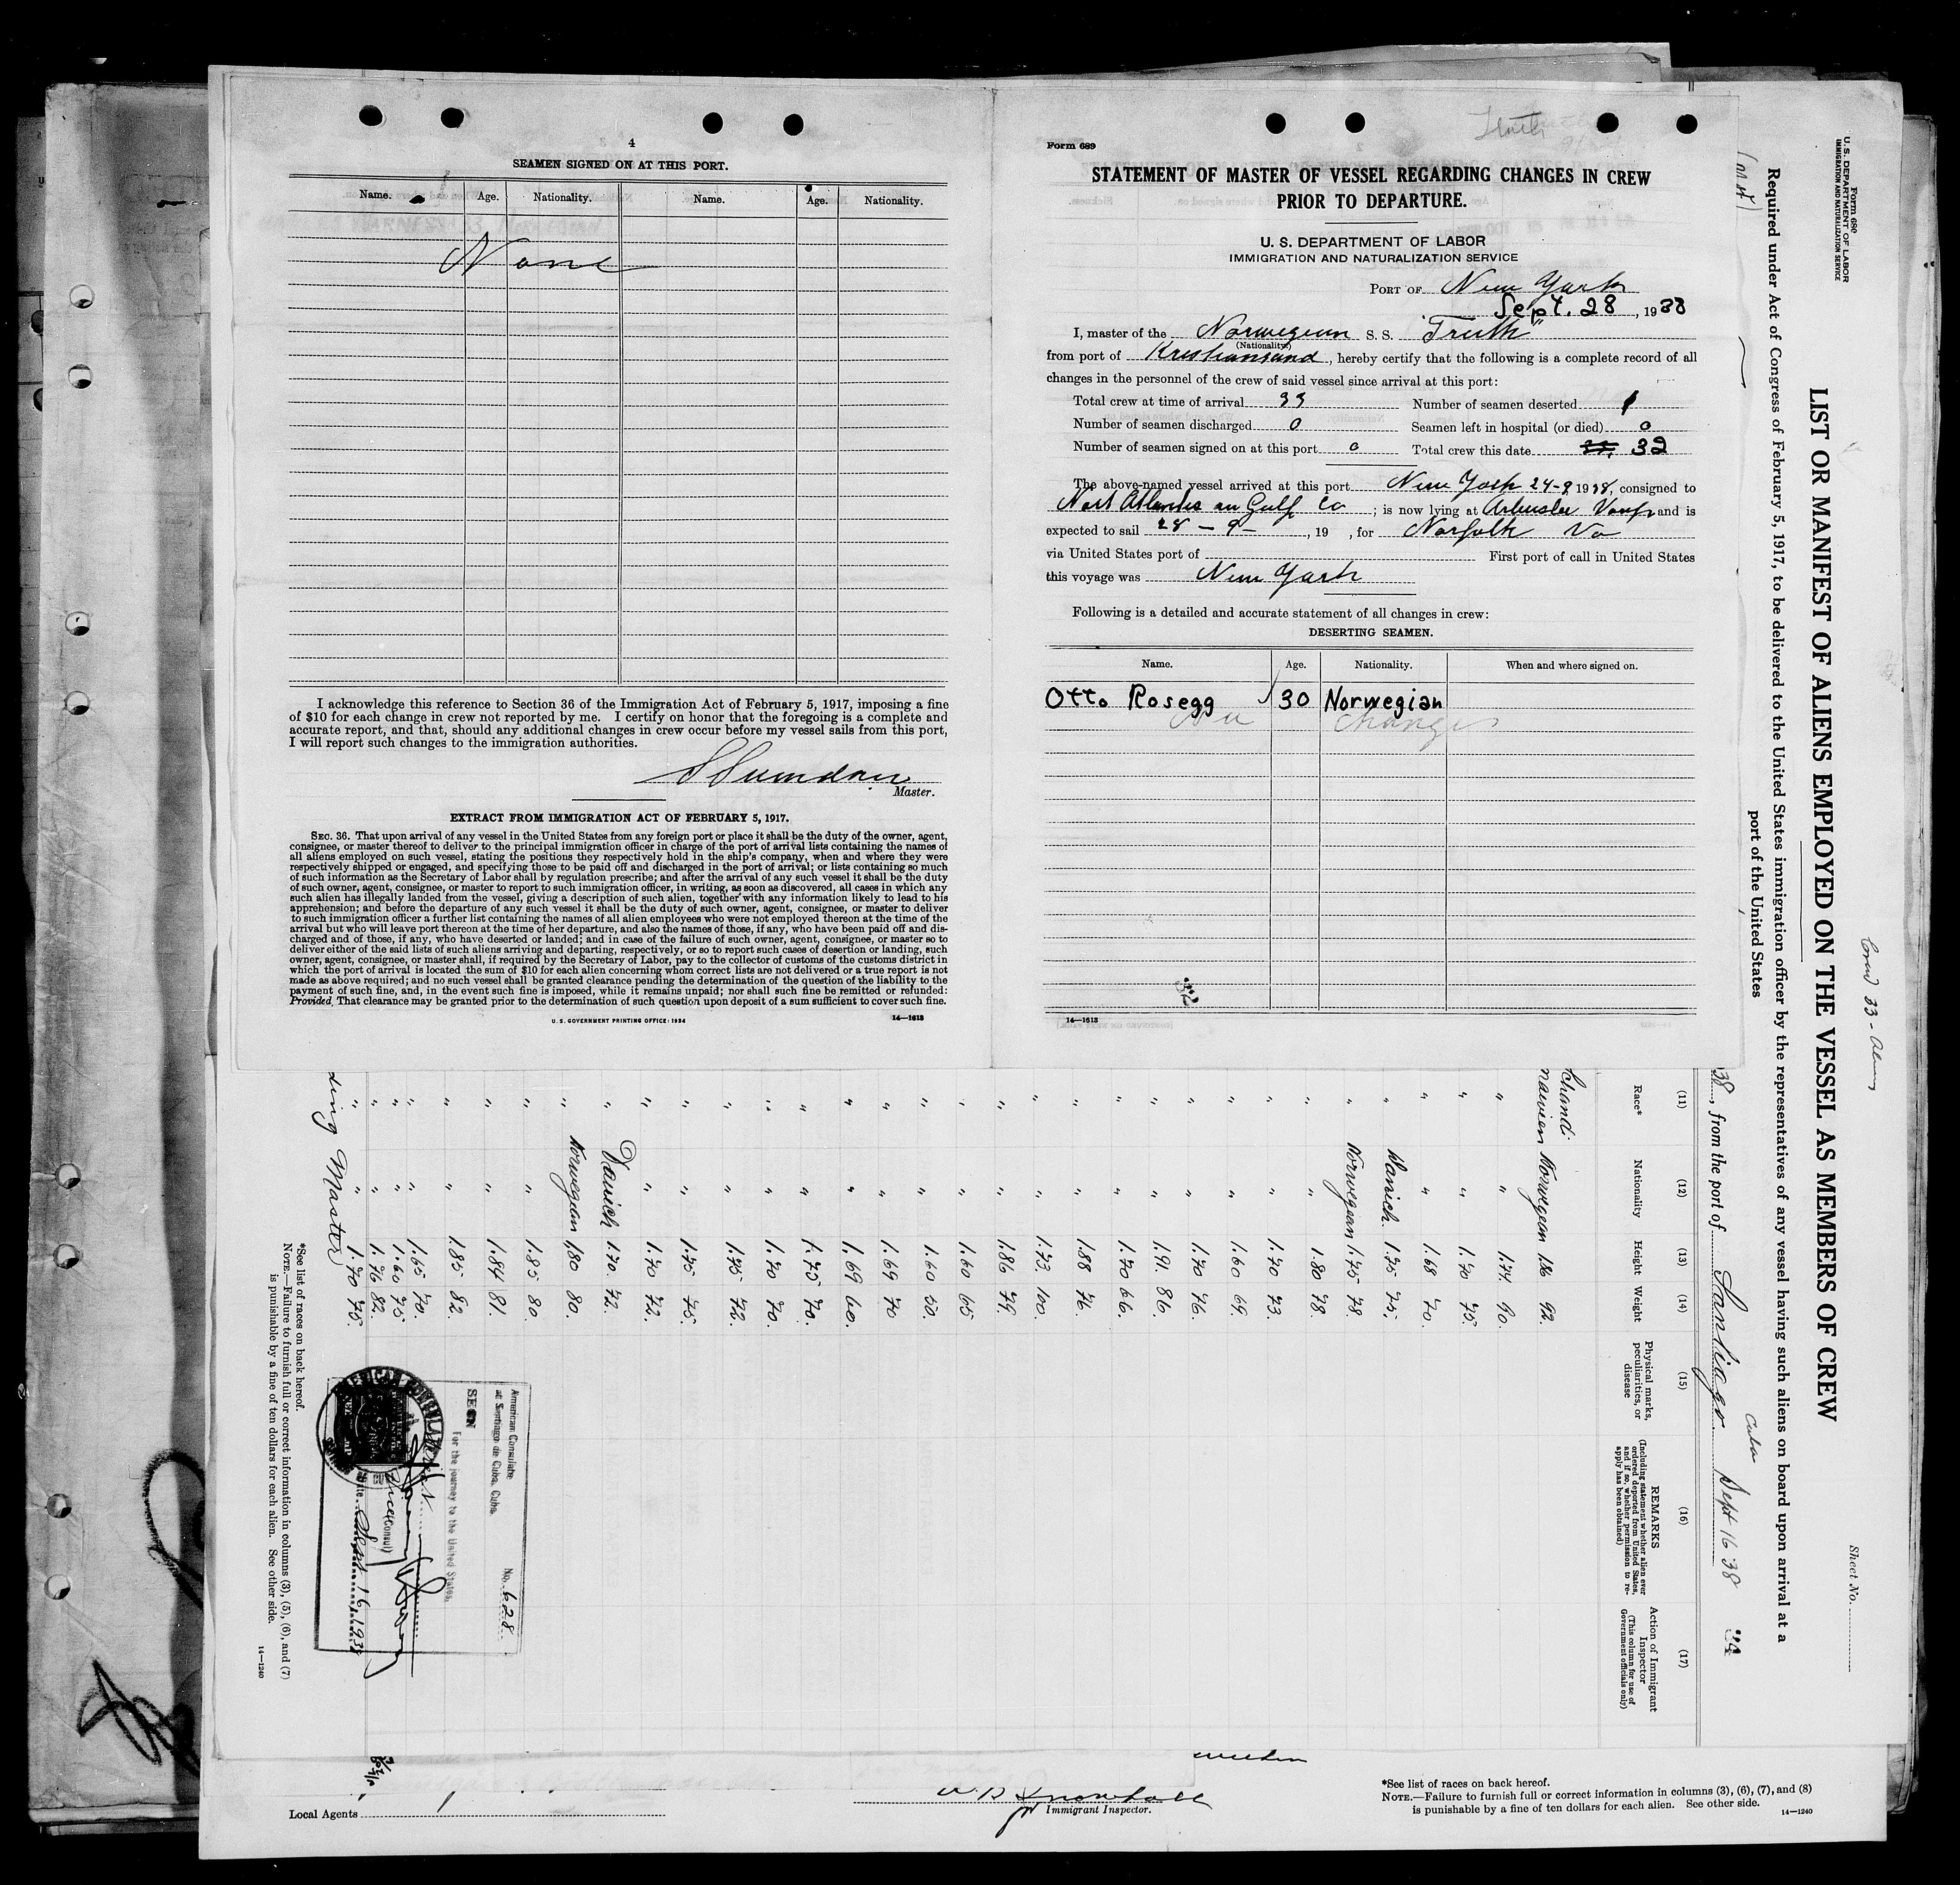 4
SEAMEN SIGNED ON AT THIS PORT.
Name. Age. Nationality. Name. Age. Nationality.
None
I acknowledge this reference to Section 36 of the Immigration Act of February 5, 1917, imposing a fine
of $10 for each change in crew not reported by me. I certify on honor that the foregoing is a complete and
accurate report, and that, should any additional changes in crew occur before my vessel sails from this port,
I will report such changes to the immigration authorities.
Master.
EXTRACT FROM IMMIGRATION ACT OF FEBRUARY 5, 1917.
SEC. 36. That upon arrival of any vessel in the United States from any foreign port or place it shall be the duty of the owner, agent,
consignee, or master thereof to deliver to the principal immigration officer in charge of the port of arrival lists containing the names of
all aliens employed on such vessel, stating the positions they respectively hold in the ship's company, when and where they were
respectively shipped or engaged, and specifying those to be paid off and discharged in the port of arrival; or lists containing so much
of such information as the Secretary of Labor shall by regulation prescribe; and after the arrival of any such vessel it shall be the duty
of such owner, agent, consignee, or master to report to such immigration officer, in writing, as soon as discovered, all cases in which any
such alien has illegally landed from the vessel, giving a description of such alien, together with any information likely to lead to his
apprehension; and before the departure of any such vessel it shall be the duty of such owner, agent, consignee, or master to deliver
to such immigration officer a further list containing the names of all alien employees who were not employed thereon at the time of the
arrival but who will leave port thereon at the time of her departure, and also the names of those, if any, who have been paid off and dis-
charged and of those, if any, who have deserted or landed; and in case of the failure of such owner, agent, consignee, or master so to
deliver either of the said lists of such aliens arriving and departing, respectively, or so to report such cases of desertion or landing, such
owner, agent, consignee, or master shall, if required by the Secretary of Labor, pay to the collector of customs of the customs district in
which the port of arrival is located the sum of $10 for each alien concerning whom correct lists are not delivered or a true report is not
made as above required; and no such vessel shall be granted clearance pending the determination of the question of the liability to the
payment of such fine, and, in the event such fine is imposed, while it remains unpaid; nor shall such fine be remitted or refunded:
Provided, That clearance may be granted prior to the determination of such question upon deposit of a sum sufficient to cover such fine.
U. S. GOVERNMENT PRINTING OFFICE: 1934 14—1613
Form 689
STATEMENT OF MASTER OF VESSEL REGARDING CHANGES IN CREW
PRIOR TO DEPARTURE.
U. S. DEPARTMENT OF LABOR
IMMIGRATION AND NATURALIZATION SERVICE
PORT OF New York
Sept. 28, 1938
I, master of the Norwegian S. S. "Truth"
(Nationality)
from port of Kristiansand, hereby certify that the following is a complete record of all
changes in the personnel of the crew of said vessel since arrival at this port:
Total crew at time of arrival 33 Number of seamen deserted 1
Number of seamen discharged 0 Seamen left in hospital (or died) 0
Number of seamen signed on at this port 0 Total crew this date 32
The above-named vessel arrived at this port New York 24-9 1938, consigned to
Nort Atlantic an Gulf Co; is now lying at and is
expected to sail 28-9-, 19 , for Norfolk Va
via United States port of First port of call in United States
this voyage was New York
Following is a detailed and accurate statement of all changes in crew:
DESERTING SEAMEN.
Name. Age. Nationality. When and where signed on.
Otto Rosegg 30 Norwegian
No changes
32
14—1613
Form 680
U. S. DEPARTMENT OF LABOR
IMMIGRATION AND NATURALIZATION SERVICE
Sheet No.
Crew 33 -
LIST OR MANIFEST OF ALIENS EMPLOYED ON THE VESSEL AS MEMBERS OF CREW
Required under Act of Congress of February 5, 1917, to be delivered to the United States immigration officer by the representatives of any vessel having such aliens on board upon arrival at a
port of the United States
38, from the port of Santiago Cuba Sept 16 38
(11) (12) (13) (14) (15) (16) (17)
Race* Nationality Height Weight Physical marks, peculiarities, or disease REMARKS Action of Immigrant Inspector
(Including statement whether alien ever ordered deported from United States, and if so, whether permission to re-apply has been obtained)
(This column for use of Government officials only)
Norwegian 1.86 92.
" " 1.74. 90.
" " 1.70 75.
" " 1.68 70.
" Danich. 1.75 75.
" Norwegian 1.75 78.
" " 1.80 78.
" " 1.70 73.
" " 1.60 69.
" " 1.70 76.
" " 1.91. 86.
" " 1.70 66.
" " 1.88 76.
" " 1.73. 100.
" " 1.86 79.
" " 1.60 65
" " 1.60 50.
" " 1.69 70
" " 1.69 60.
" " 1.75 70.
" " 1.70 70.
" " 1.75 72.
" " 1.75 75.
" " 1.70 72.
" Danich 1.70. 72.
" Norwegian 1.80 80.
" " 1.85 80.
" " 1.84 81.
" " 1.85 82.
" " 1.65 70.
" " 1.60 75
" " 1.76 82.
" " 1.70 75.
Master
American Consulate
at Santiago de Cuba, Cuba.
No. 628
SEEN
For the journey to the United States.
(Vice Consul)
Date Sept 16, 1938
*See list of races on back hereof.
NOTE.—Failure to furnish full or correct information in columns (3), (5), (6), and (7)
is punishable by a fine of ten dollars for each alien. See other side.
14—1240
Local Agents
Immigrant Inspector.
*See list of races on back hereof.
NOTE.—Failure to furnish full or correct information in columns (3), (6), (7), and (8)
is punishable by a fine of ten dollars for each alien. See other side.
14—1240